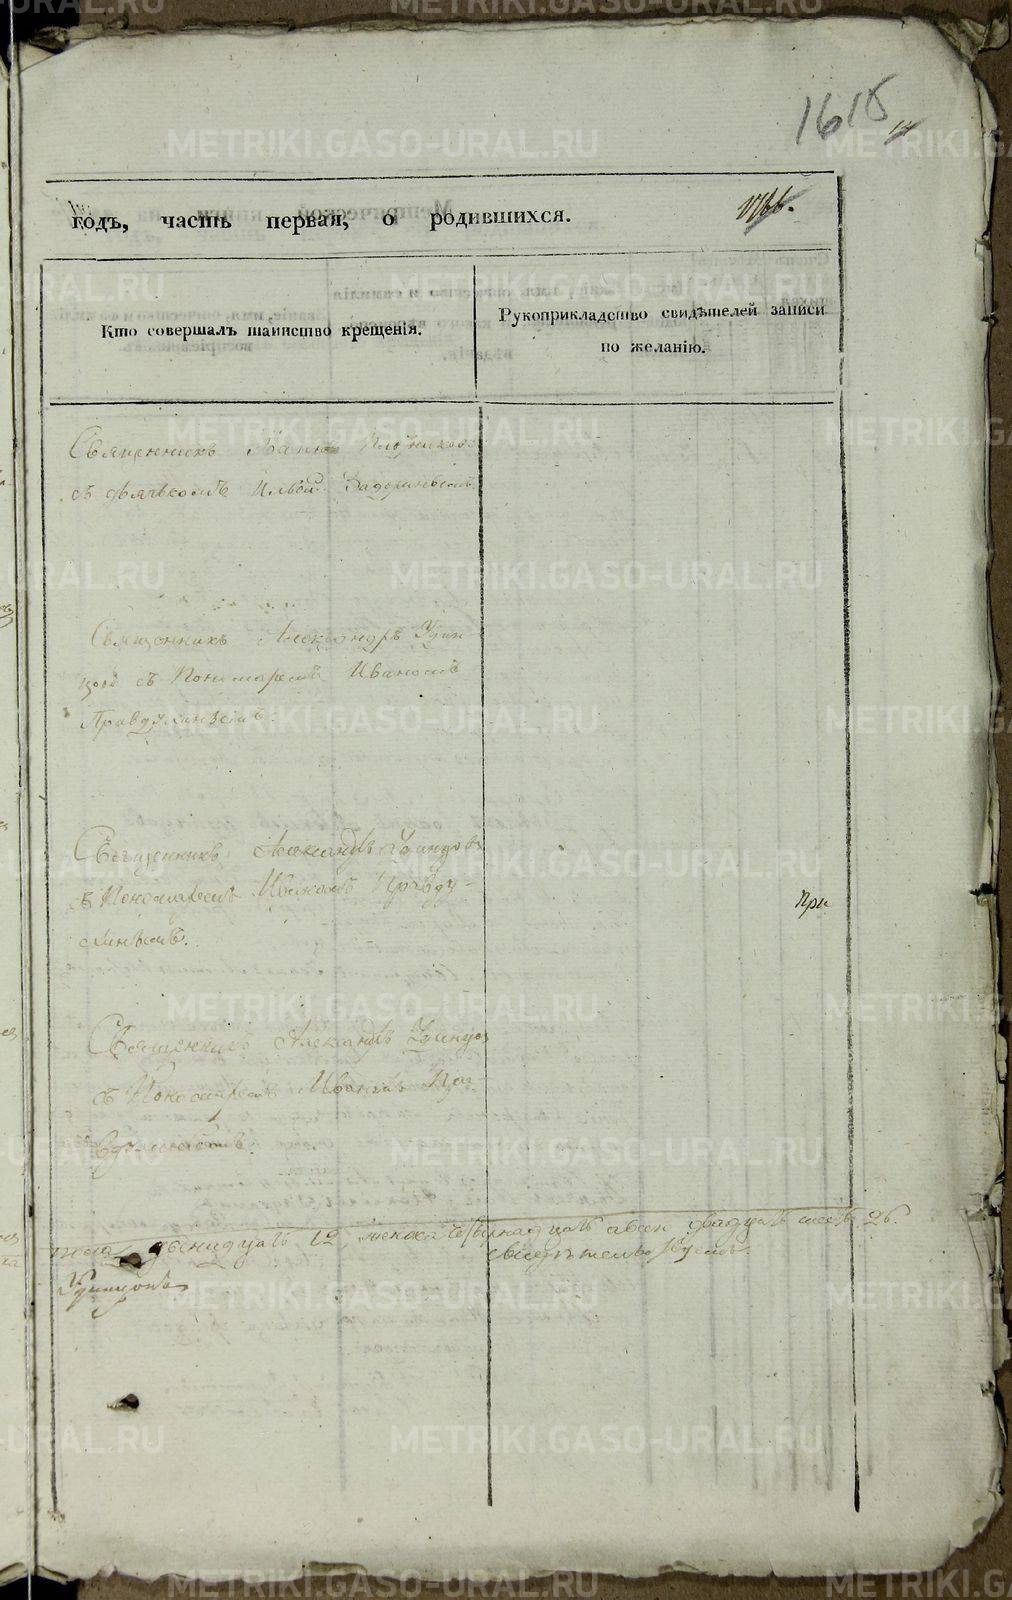 1615
годъ, часть первая, о родившихся.
Кто совершалъ таинство крещенія.
Рукоприкладство свидѣтелей записи
по желанію.
Священникъ
съ дьячкомъ Ильёй
Священникъ Александръ Удин
цовъ съ Пономаремъ Иваномъ
Правдухинымъ.
Священникъ Александръ Удинцовъ
съ Пономаремъ Иваномъ Правду-
хинымъ.
При
Священникъ Александръ Удинцов
съ Пономаремъ Иваномъ Пра-
вдухинымъ.
пола двенадцать 12 женска четырнадцать а всех двадцать шесть 26.
Удинцовъ
METRIKI.GASO-URAL.RU